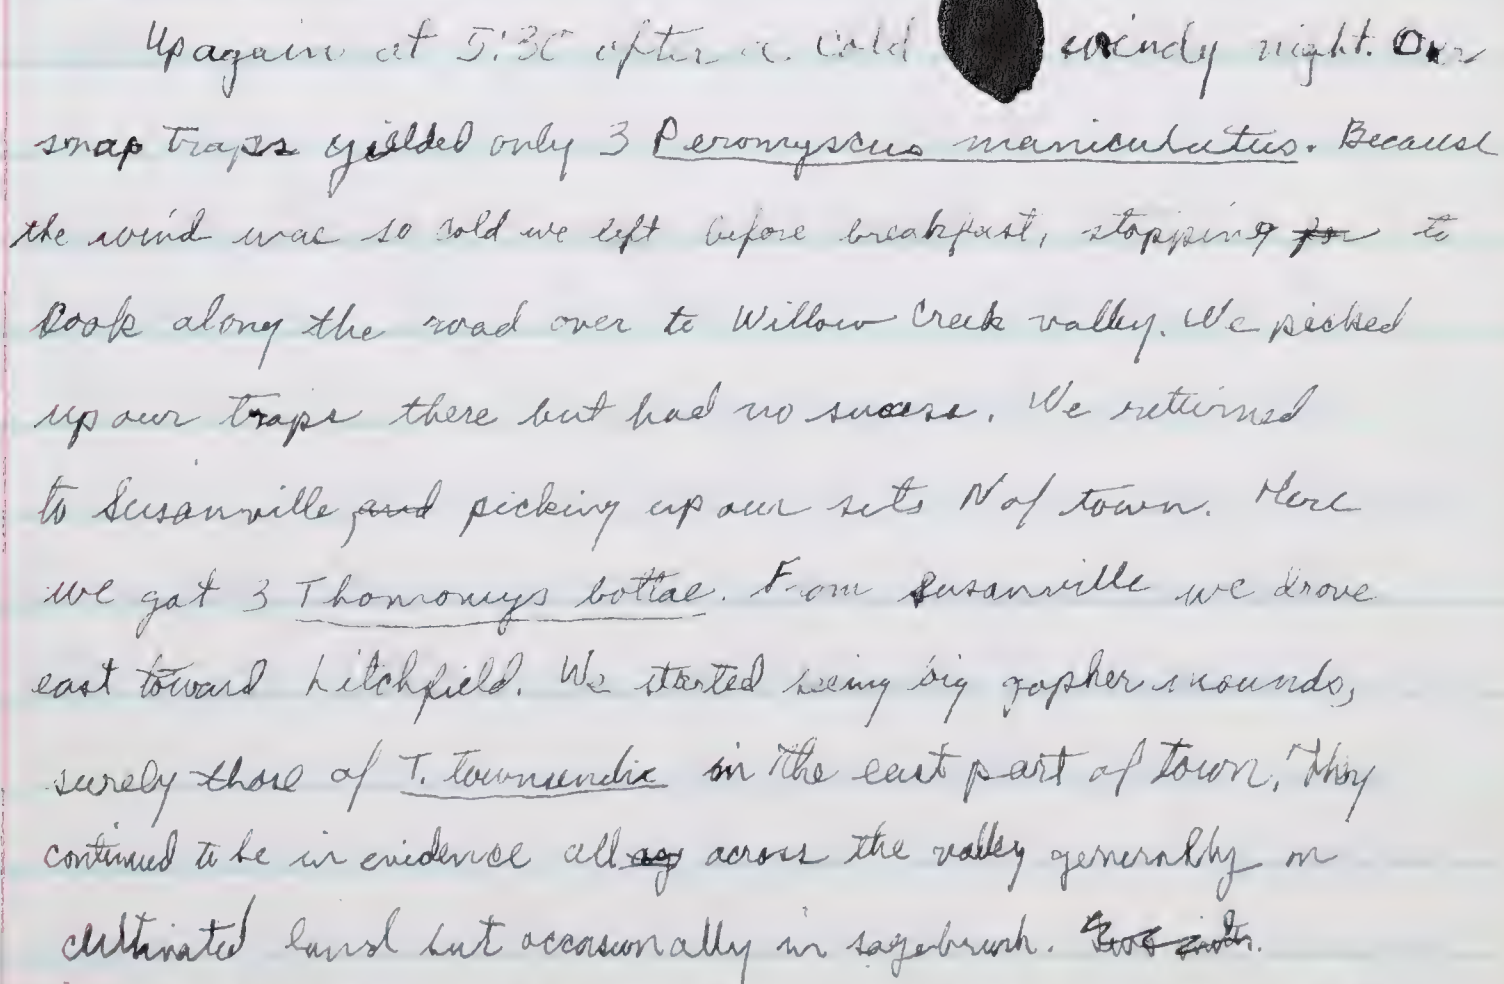 Up again at 5:30 after a cold windy night. Our
snap traps yielded only 3 Peromyscus maniculatus. Because
the wind was so cold we left before breakfast, stopping for to
cook along the road over to Willow Creek valley. We picked
up our traps there but had no sucess. We returned
to Susanville, and picking up our sets N of town. Here
we got 3 Thomomys bottae. From Susanville we drove
east toward Litchfield. We started seeing big gopher mounds,
surely those of T. townsendii in the east part of town. They
continued to be in evidence all across the valley generally on
cultivated land but occasionally in sagebrush.